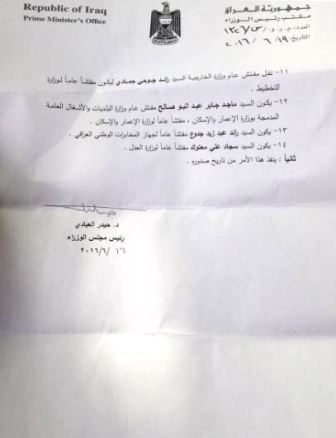 Republic of Iraq
Prime Minister's Office
جمهورية العراق
مكتب رئيس الوزراء
العدد:
التاريخ: ٢٠١٦/٦/١٩
١١- نقل مفتش عام وزارة الخارجية السيد رائد جوحي حمادي ليكون مفتشاً عاماً لوزارة
التخطيط .
١٢- يكون السيد ماجد جابر عبد ابو صالح مفتش عام وزارة البلديات والأشغال العامة
المدمجة بوزارة الإعمار والإسكان ، مفتشاً عاماً لوزارة الإعمار والإسكان .
١٣- يكون السيد رائد عبد زيد جدوع مفتشاً عاماً لجهاز المخابرات الوطني العراقي .
١٤- يكون السيد سجاد علي معتوك مفتشاً عاماً لوزارة العدل .
ثانياً : ينفذ هذا الأمر من تاريخ صدوره .
د. حيدر العبادي
رئيس مجلس الوزراء
١٦ /٢٠١٦/٦